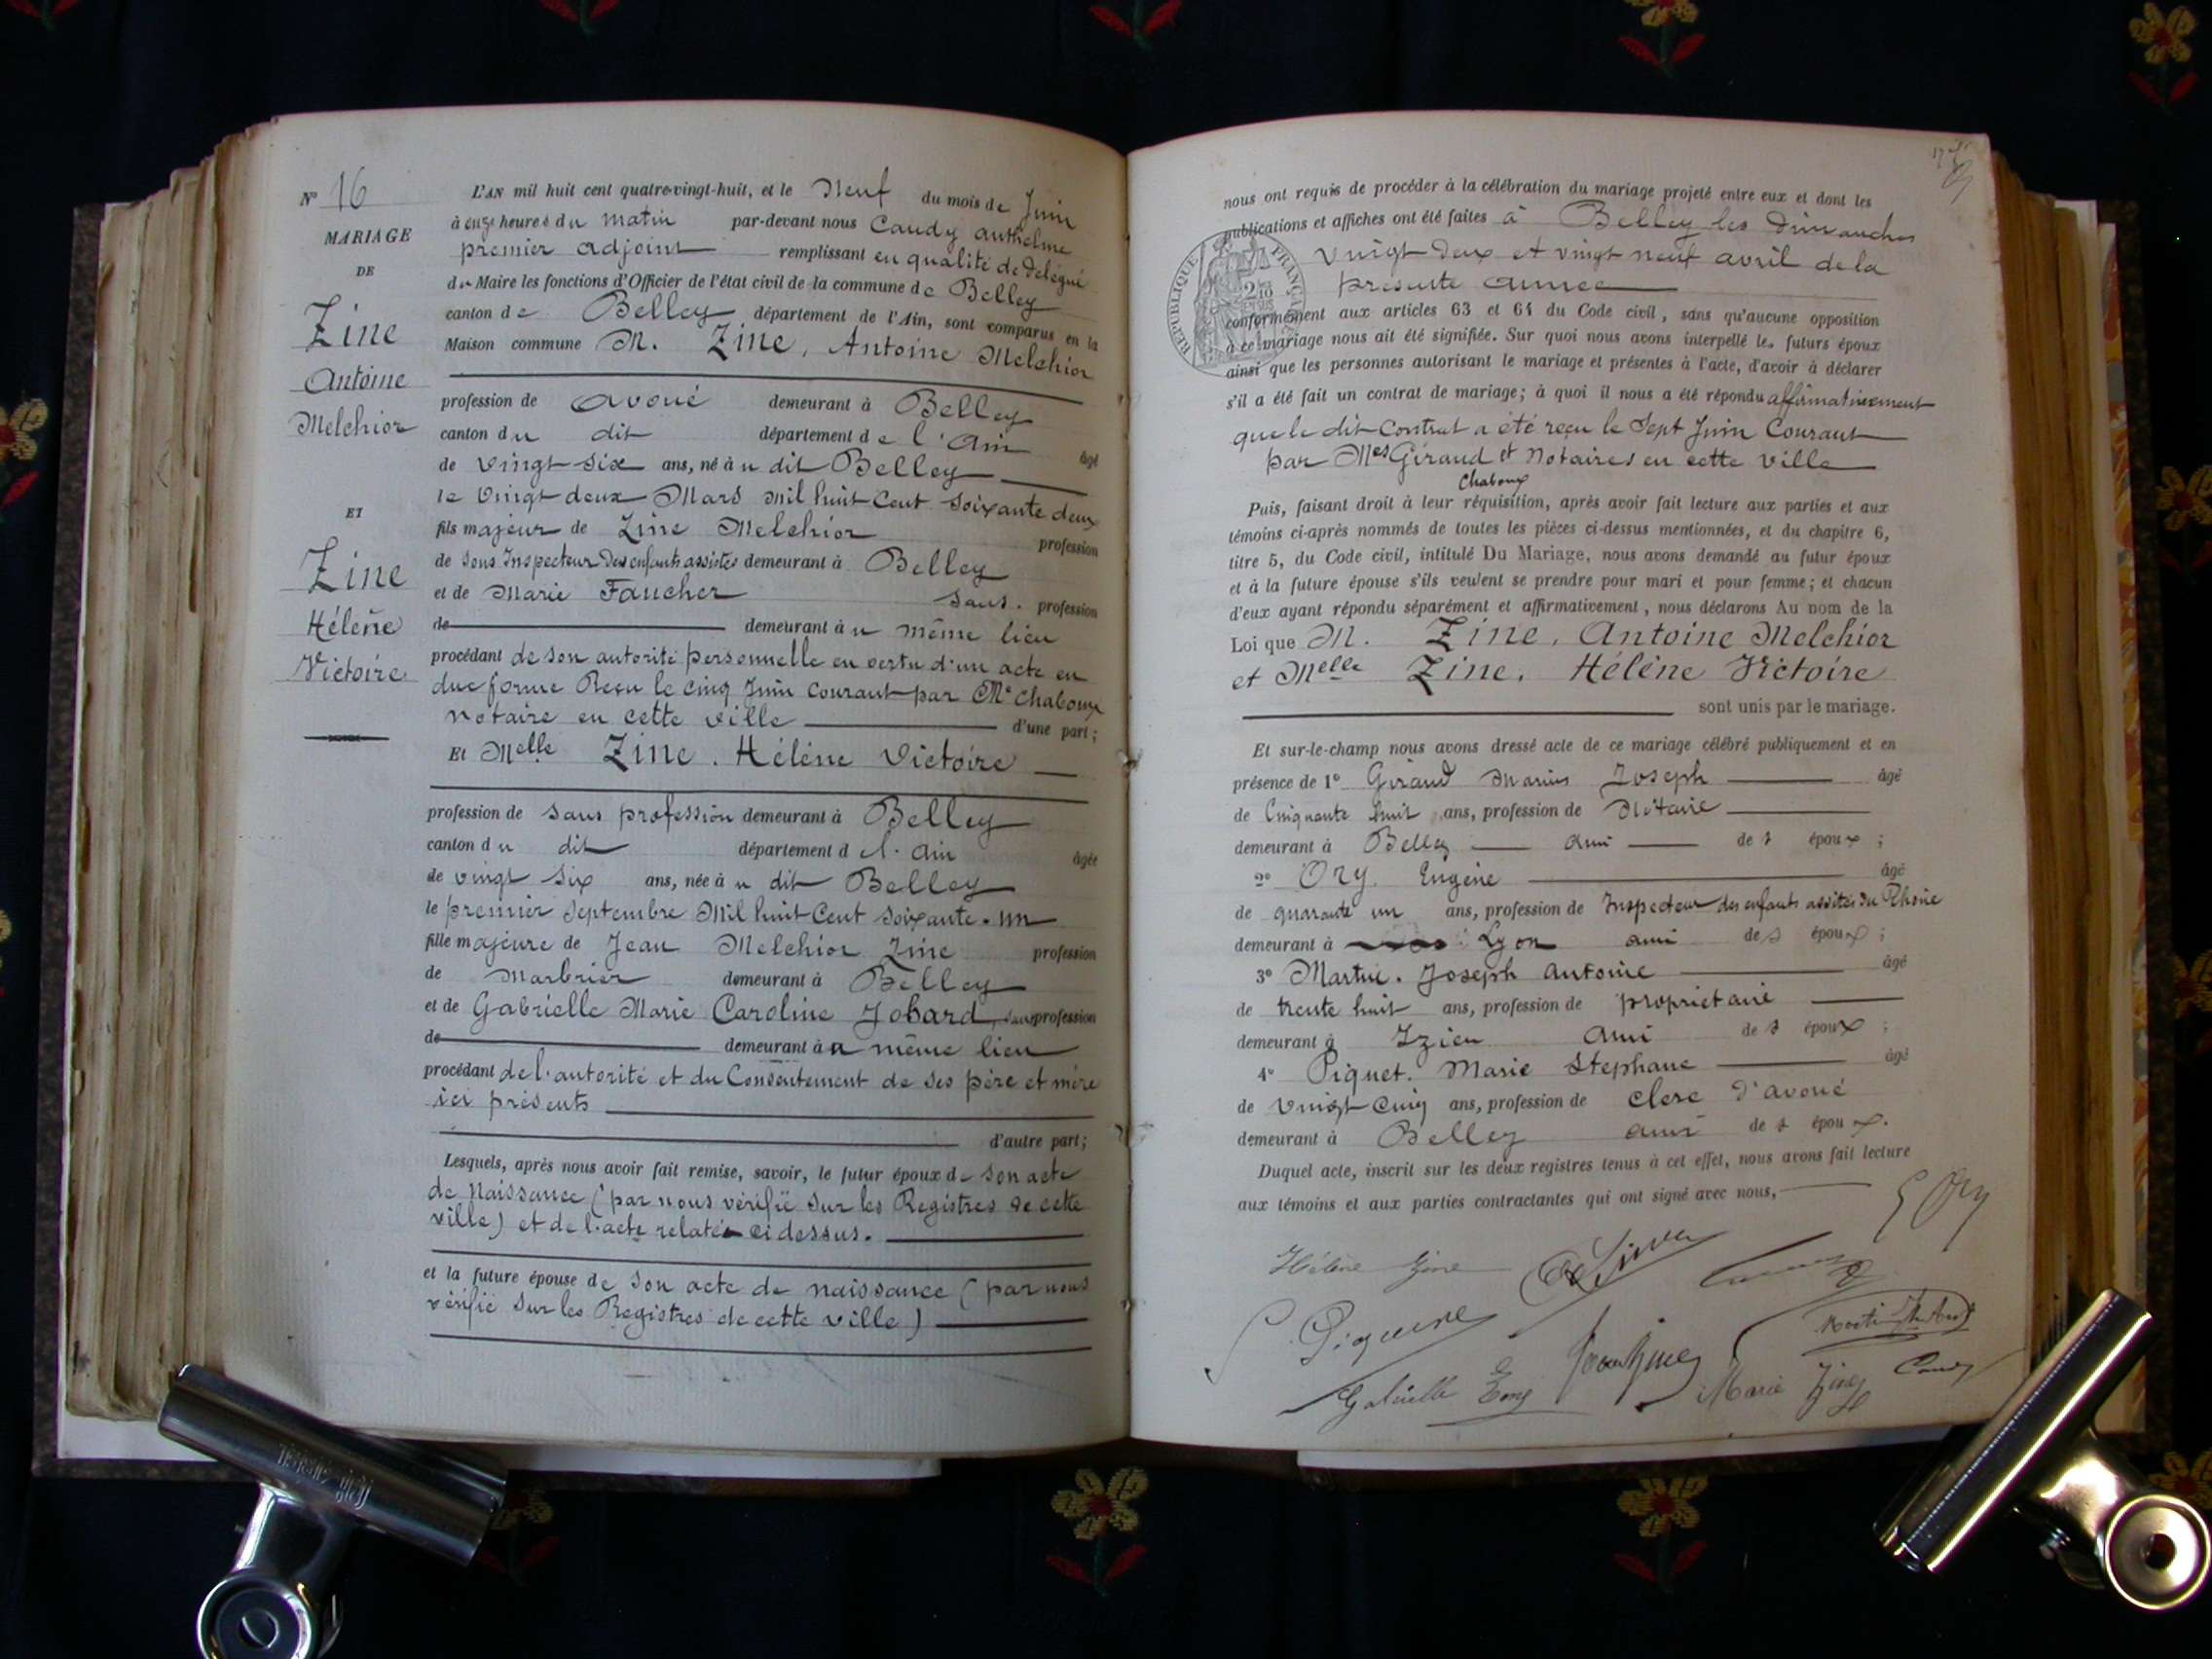 N° 16
MARIAGE
DE
Zine
Antoine
Melchior
ET
Zine
Hélène
Victoire
L'AN mil huit cent quatre-vingt-huit, et le Neuf du mois de Juin
à onze heures du matin par-devant nous Caudy anthelme
premier adjoint remplissant en qualité de délégué
du Maire les fonctions d'Officier de l'état civil de la commune de Belley
canton de Belley département de l'Ain, sont comparus en la
Maison commune M. Zine, Antoine Melchior
profession de avoué demeurant à Belley
canton du dit département de l'Ain âgé
de vingt-six ans, né à u dit Belley
le vingt deux Mars mil huit Cent soixante deux
fils majeur de Zine Melchior profession
de Sous Inspecteur des enfants assistés demeurant à Belley
et de Marie Faucher sans profession
de demeurant à u même lieu
procédant de son autorité personnelle en vertu d'un acte en
due forme Reçu le cinq Juin courant par Me Chaboux
notaire en cette ville d'une part;
Et Melle Zine. Hélène Victoire
profession de sans profession demeurant à Belley
canton du dit département d el. Ain âgée
de vingt six ans, née à u dit Belley
le premier septembre Mil huit Cent soixante-un
fille majeure de Jean Melchior Zine profession
de Marbrier demeurant à Belley
et de Gabrielle Marie Caroline Jobard, sans profession
de demeurant à u même lieu
procédant de l'autorité et du Consentement de ses père et mère
ici présents
d'autre part;
Lesquels, après nous avoir fait remise, savoir, le futur époux de son acte
de Naissance (par nous vérifié sur les Registres de cette
ville) et de l'acte relaté ci dessus.
et la future épouse de son acte de naissance (par nous
vérifié sur les Registres de cette ville)
nous ont requis de procéder à la célébration du mariage projeté entre eux et dont les
publications et affiches ont été faites à Belley les dimanches
vingt-deux et vingt neuf avril de la
présente année
RÉPUBLIQUE FRANÇAISE
conformément aux articles 63 et 64 du Code civil, sans qu'aucune opposition
à ce mariage nous ait été signifiée. Sur quoi nous avons interpellé les futurs époux
ainsi que les personnes autorisant le mariage et présentes à l'acte, d'avoir à déclarer
s'il a été fait un contrat de mariage; à quoi il nous a été répondu affirmativement
que le dit Contrat a été reçu le Sept Juin Courant
par Mes Giraud et Notaires en cette ville
Chaboux
Puis, faisant droit à leur réquisition, après avoir fait lecture aux parties et aux
témoins ci-après nommés de toutes les pièces ci-dessus mentionnées, et du chapitre 6,
titre 5, du Code civil, intitulé Du Mariage, nous avons demandé au futur époux
et à la future épouse s'ils veulent se prendre pour mari et pour femme; et chacun
d'eux ayant répondu séparément et affirmativement, nous déclarons Au nom de la
Loi que M. Zine, Antoine Melchior
et Melle Zine. Hélène Victoire
sont unis par le mariage.
Et sur-le-champ nous avons dressé acte de ce mariage célébré publiquement et en
présence de 1° Giraud Marius Joseph âgé
de Cinquante huit ans, profession de Notaire
demeurant à Belley ami de s époux;
2° Ory. Eugène âgé
de quarante un ans, profession de Inspecteur des enfants assistés du Rhône
demeurant à Lyon ami de s époux;
3° Martin. Joseph Antoine âgé
de trente huit ans, profession de propriétaire
demeurant à Izieu ami de s époux;
4° Piquet. Marie Stephane âgé
de vingt-cinq ans, profession de clerc d'avoué
demeurant à Belley ami de s époux.
Duquel acte, inscrit sur les deux registres tenus à cet effet, nous avons fait lecture
aux témoins et aux parties contractantes qui ont signé avec nous,
E Ory
Hélène Zine
Marie Zine